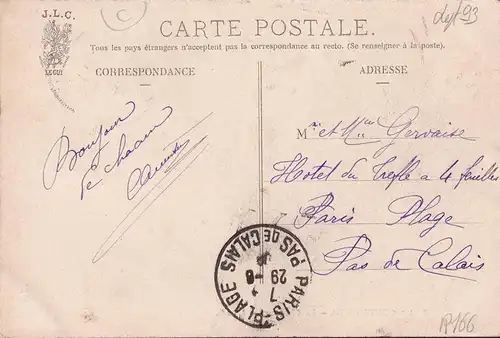 J.L.C.
LE GUI
C
Dept 93
CARTE POSTALE.
Tous les pays étrangers n'acceptent pas la correspondance au recto. (Se renseigner à la poste).
CORRESPONDANCE
ADRESSE
Bonjour
de chacun
M et Mme Gervaise
Hotel du Trefle a 4 feuilles
Paris Plage
Pas de Calais
PARIS-PLAGE PAS DE CALAIS
7
29 -8
AP166